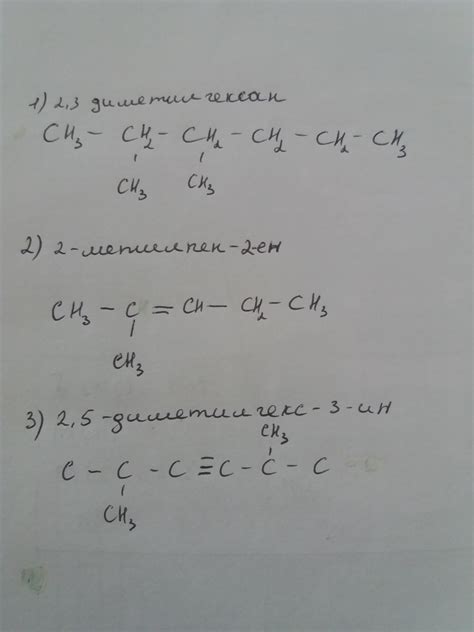 1) 2,3 диметилгексан
CH₃ – CH₂ – CH₂ – CH₂ – CH₂ – CH₃
CH₃ CH₃
2) 2-метилпен-2-ен
CH₃ – C = CH – CH₂ – CH₃
CH₃
3) 2,5-диметилгекс-3-ин
CH₃
C – C – C ≡ C – C – C
CH₃